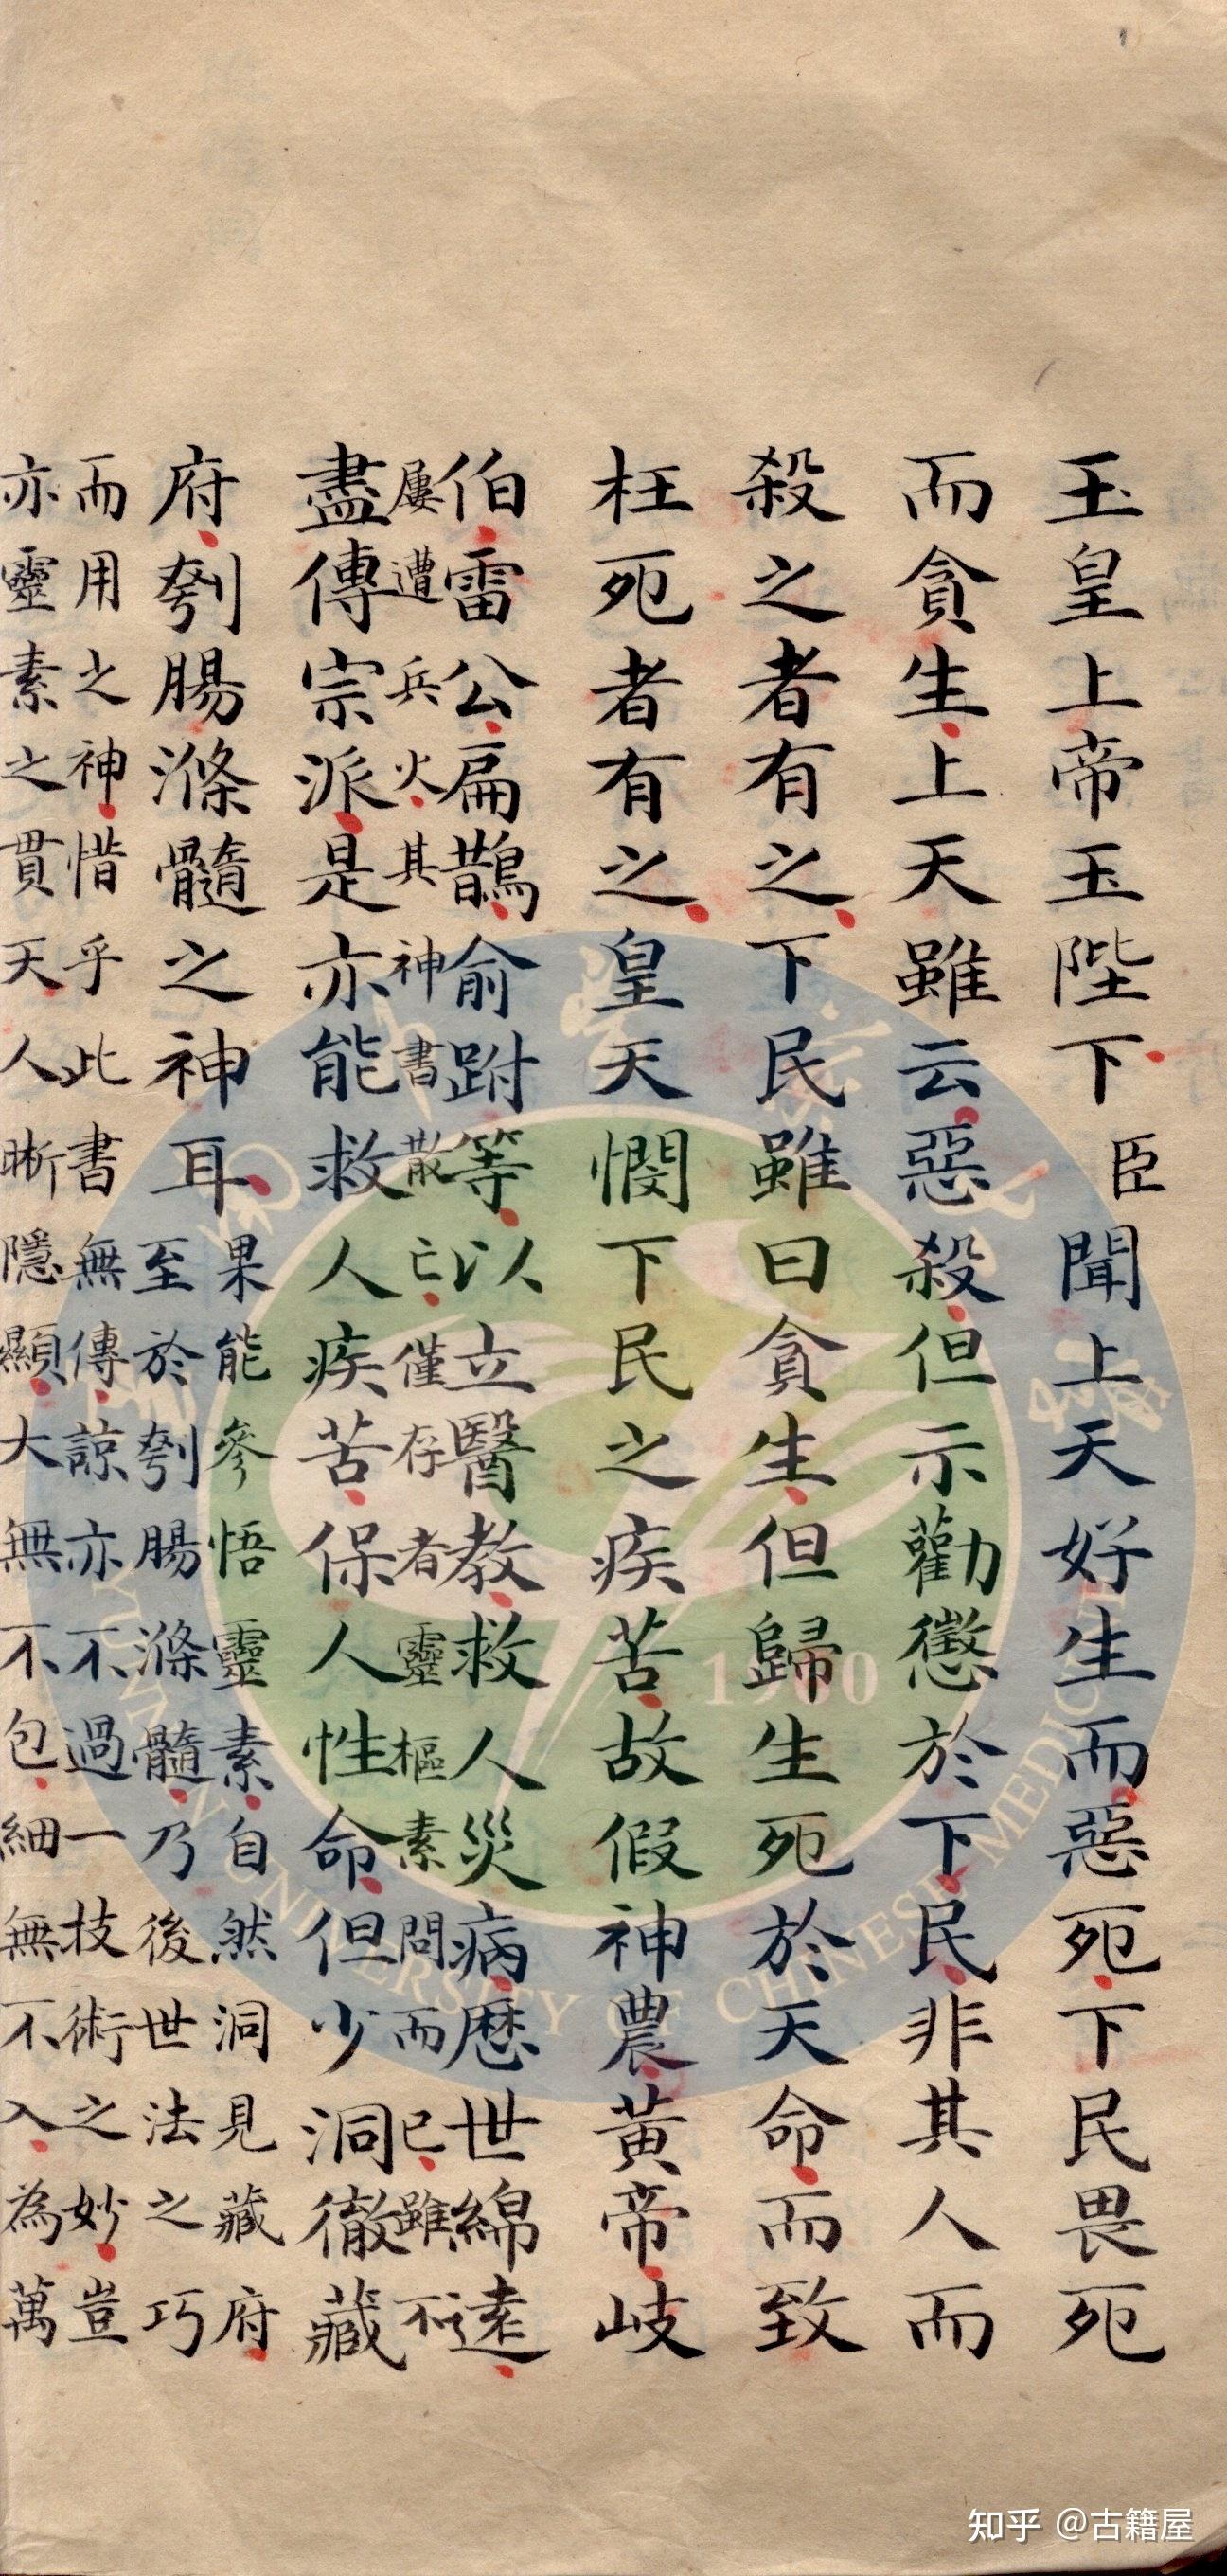 玉皇上帝玉陛下臣聞上天好生而惡死下民畏死
而貪生上天雖云惡殺但示勸懲於下民非其人而
殺之者有之下民雖曰貪生但歸生死於天命而致
枉死者有之皇天憫下民之疾苦故假神農黃帝岐
伯雷公扁鵲俞跗等以立醫教救人災病厯世綿遠
屢遭兵火其神書散亡僅存者靈樞素問而已雖不
盡傳宗派是亦能救人疾苦保人性命但少洞徹藏
府刳腸滌髓之神耳
果能參悟靈素自然洞見藏府
至於刳腸滌髓乃後世法之巧
而用之神惜乎此書無傳諒亦不過一技術之妙豈
亦靈素之貫天人晰隱顯大無不包細無不入為萬
UNIVERSITY OF CHINESE MEDICINE
知乎 @古籍屋